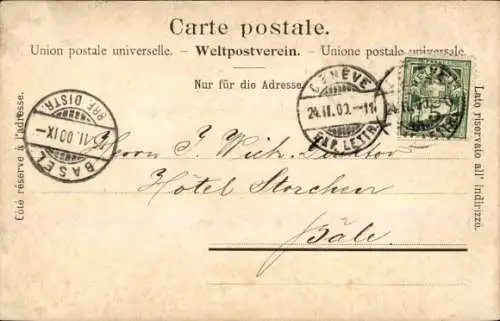 Carte postale.
Union postale universelle. – Weltpostverein. – Unione postale universale.
Nur für die Adresse
Côté réservé à l'adresse.
Lato riservato all'indirizzo.
GENÈVE
24.II.00.–11
EXP. LETTR.
BASEL
BRF. DISTR.
Herrn J.
Hôtel Storchen
Bâle.